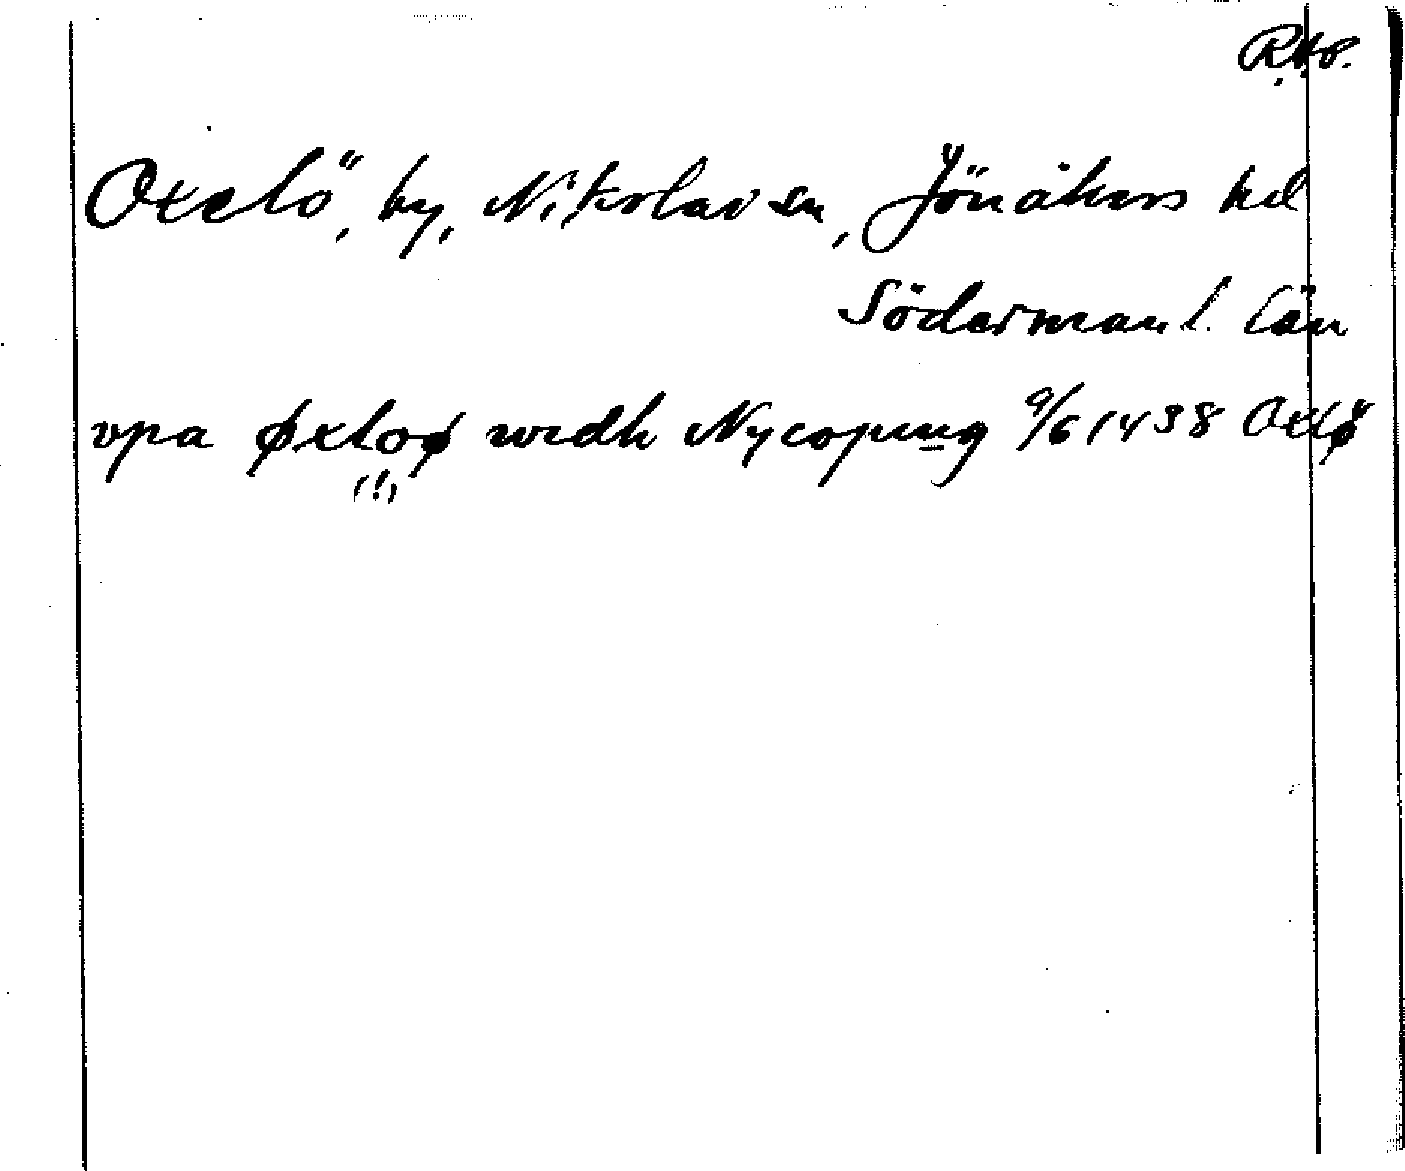 R.A.P.
Oxelö, by, Nikolai sn, Jönåkers hd
Södermanl. län
vpa øxloø widh Nycopung 9/6 1438 Oxlø
(!)